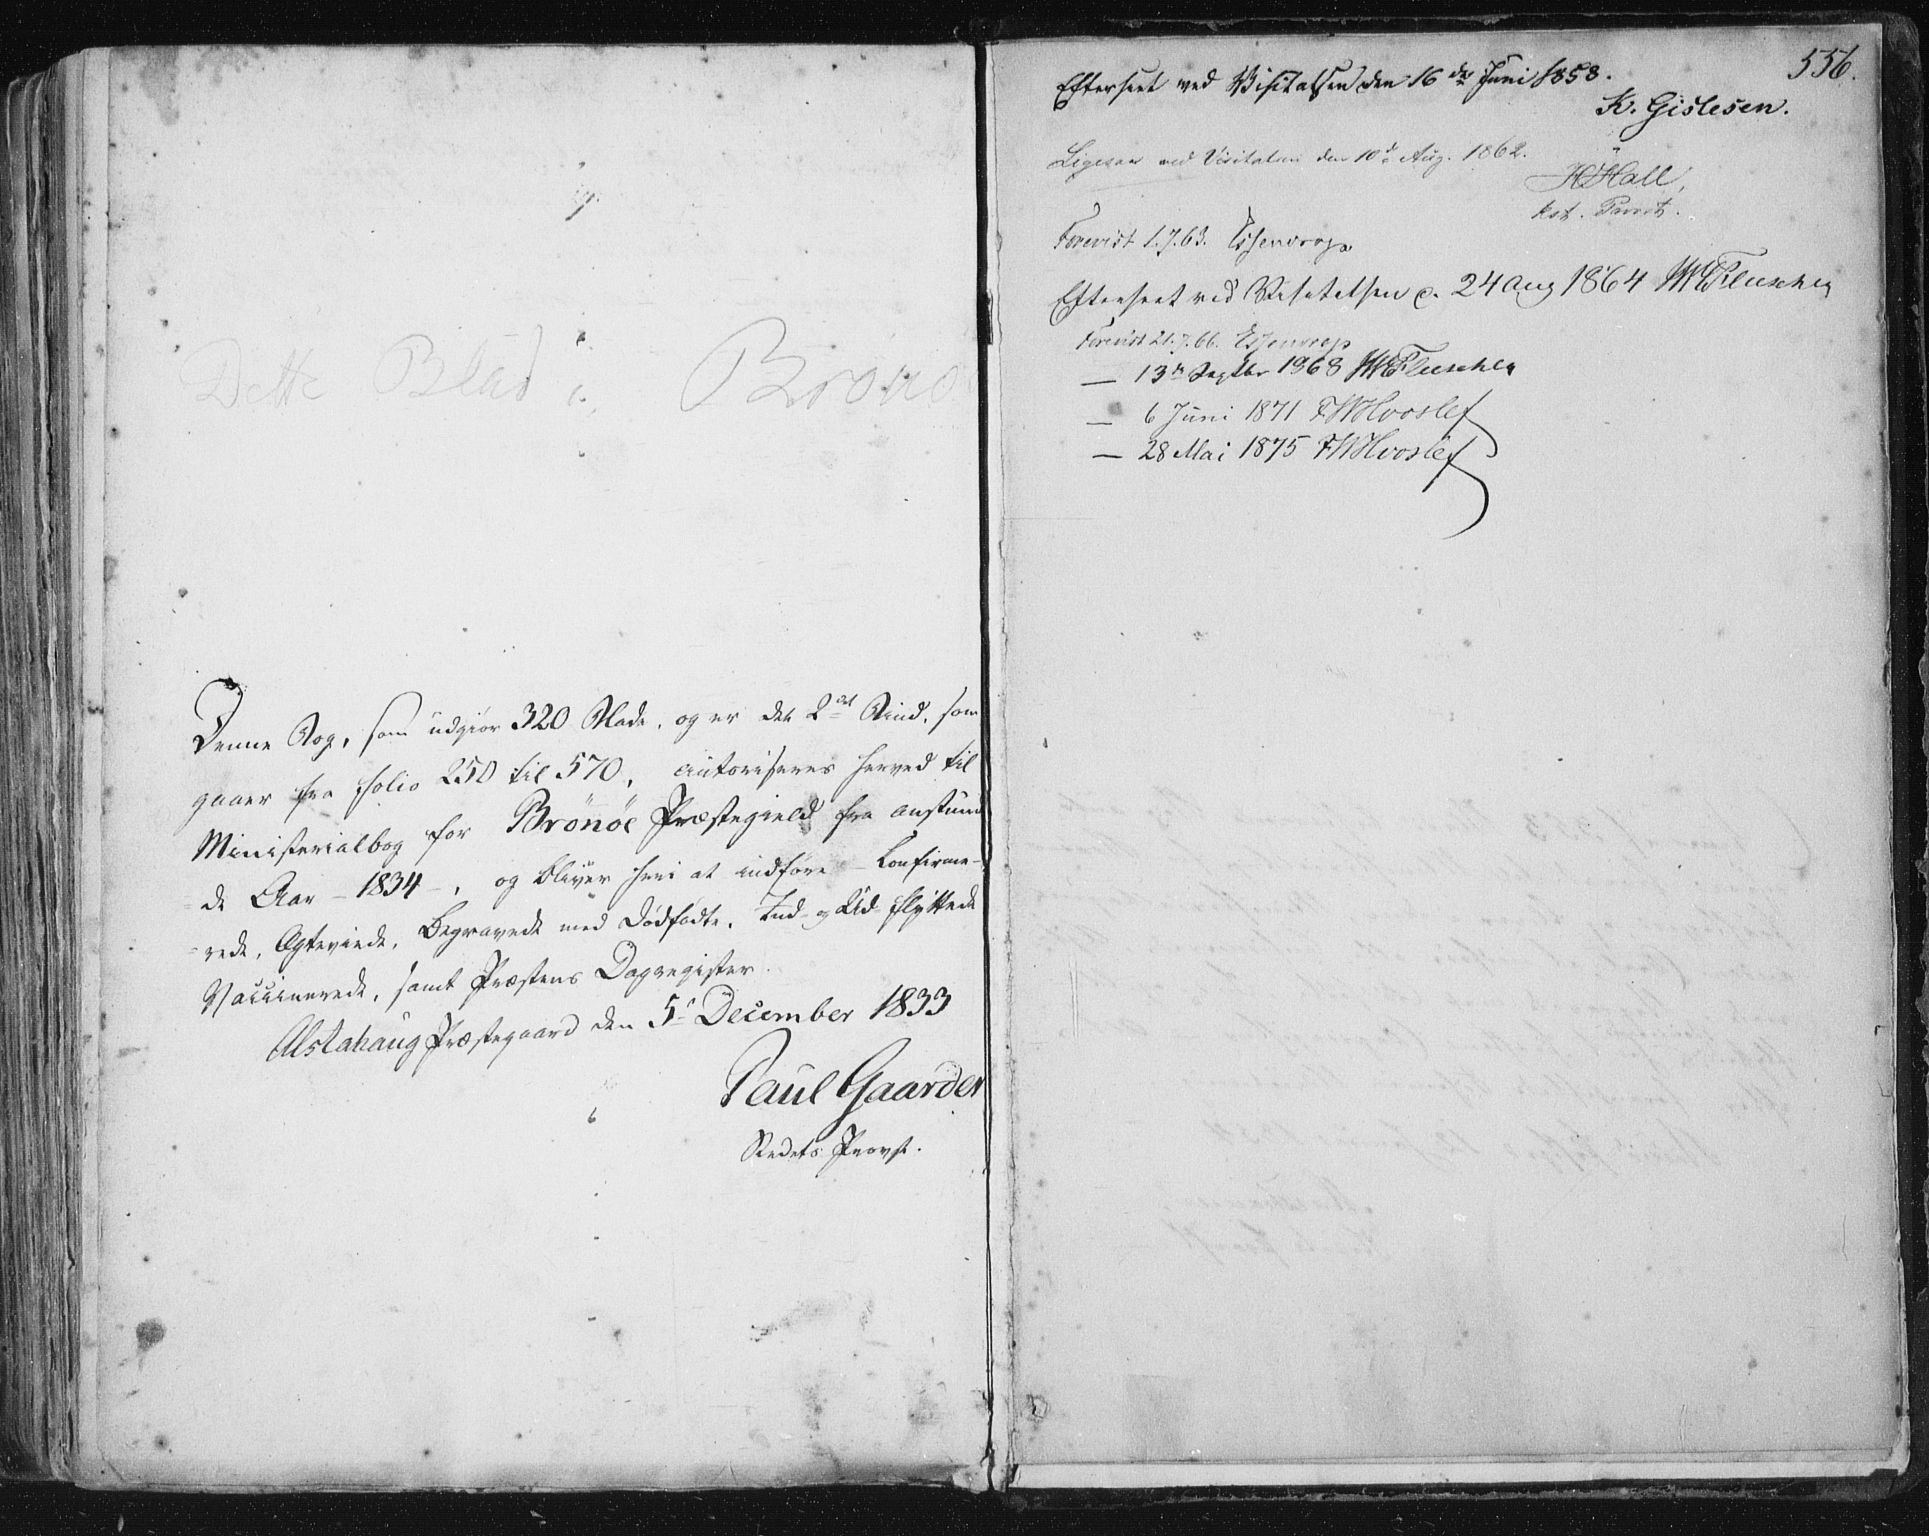 Dette Blad i Brønø
Denne Bog, som udgiør 320 Blade, og er det 2det Bind, som
gaaer fra Folio 250 til 570, autoriseres herved til
Ministerialbog for Brönöe Præstegield fra anstund-
de Aar - 1834 -, og bliver heri at indføre - Confirme-
rede, Egteviede, Begravede med Dødfødte, Ind- og Ud-flyttede
Vaccinerede, samt Præstens Dagregister.
Alstahaug Præstegaard den 5te December 1833
Paul Gaarder
Stedets Provst.
556.
Efterseet ved Visitatsen den 16de Juni 1858.
K. Gislesen.
Ligesaa ved Visitatsen den 10de Aug. 1862.
H Hall,
kst. Provst.
Forevist 1.7.63. Essendrop
Efterseet ved Visitatsen d. 24 Aug 1864
Forevist 21.7.66. Essendrop
— 13de Septbr 1868
— 6 Juni 1871 FWHvoslef
— 28 Mai 1875 FWHvoslef